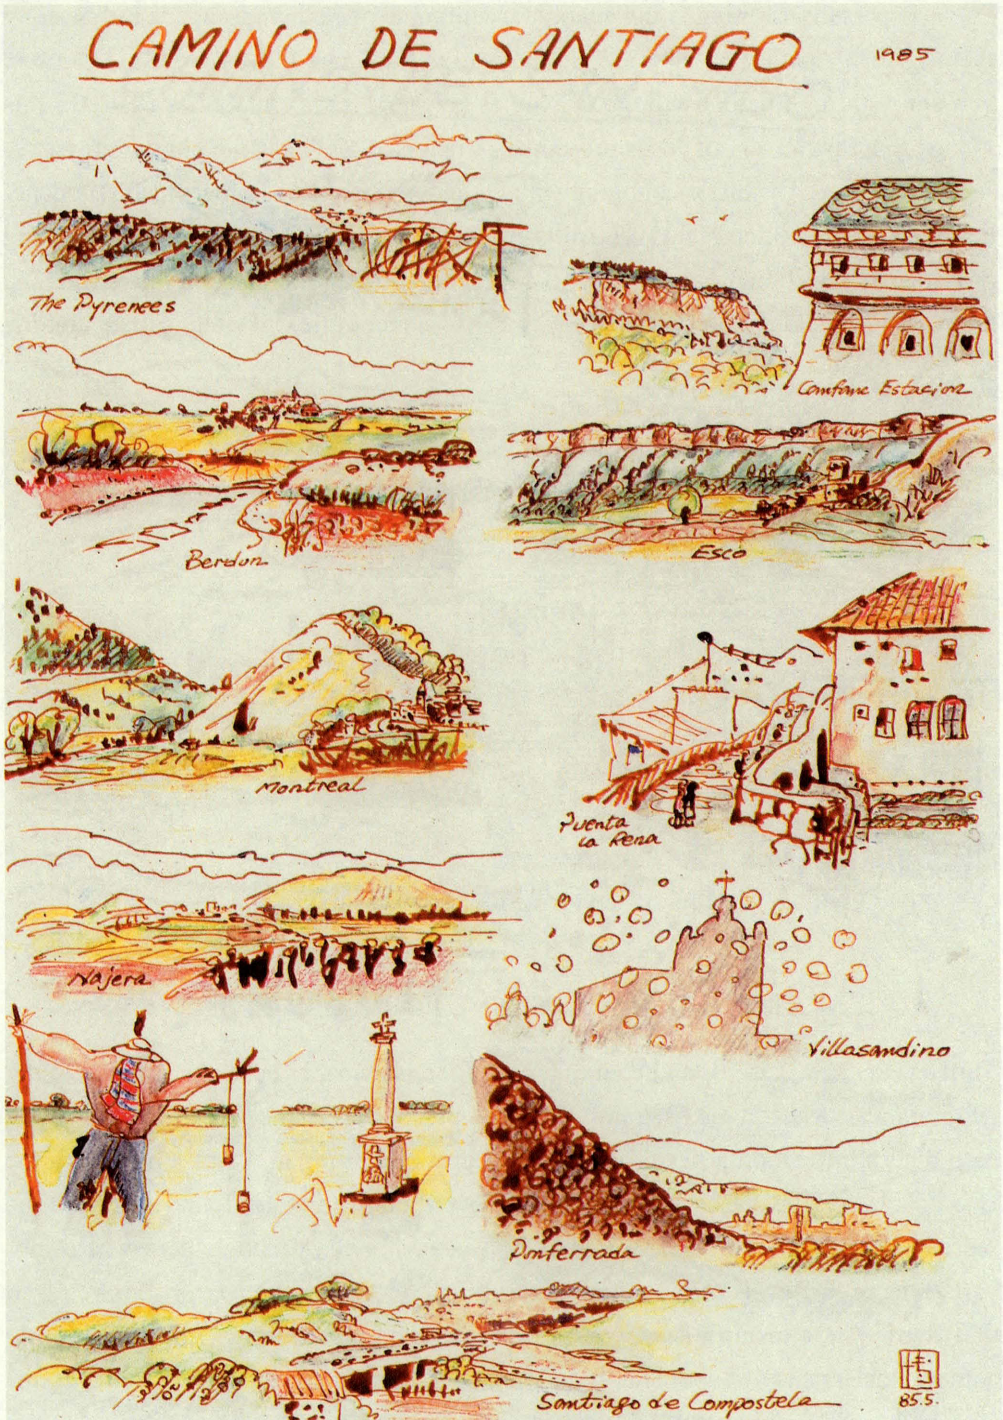 CAMINO DE SANTIAGO
1985
The Pyrenees
Canfranc Estacion
Berdun
Esco
Montreal
Puenta
la Rena
Najera
Villasandino
Ponferrada
Santiago de Compostela
85.5.